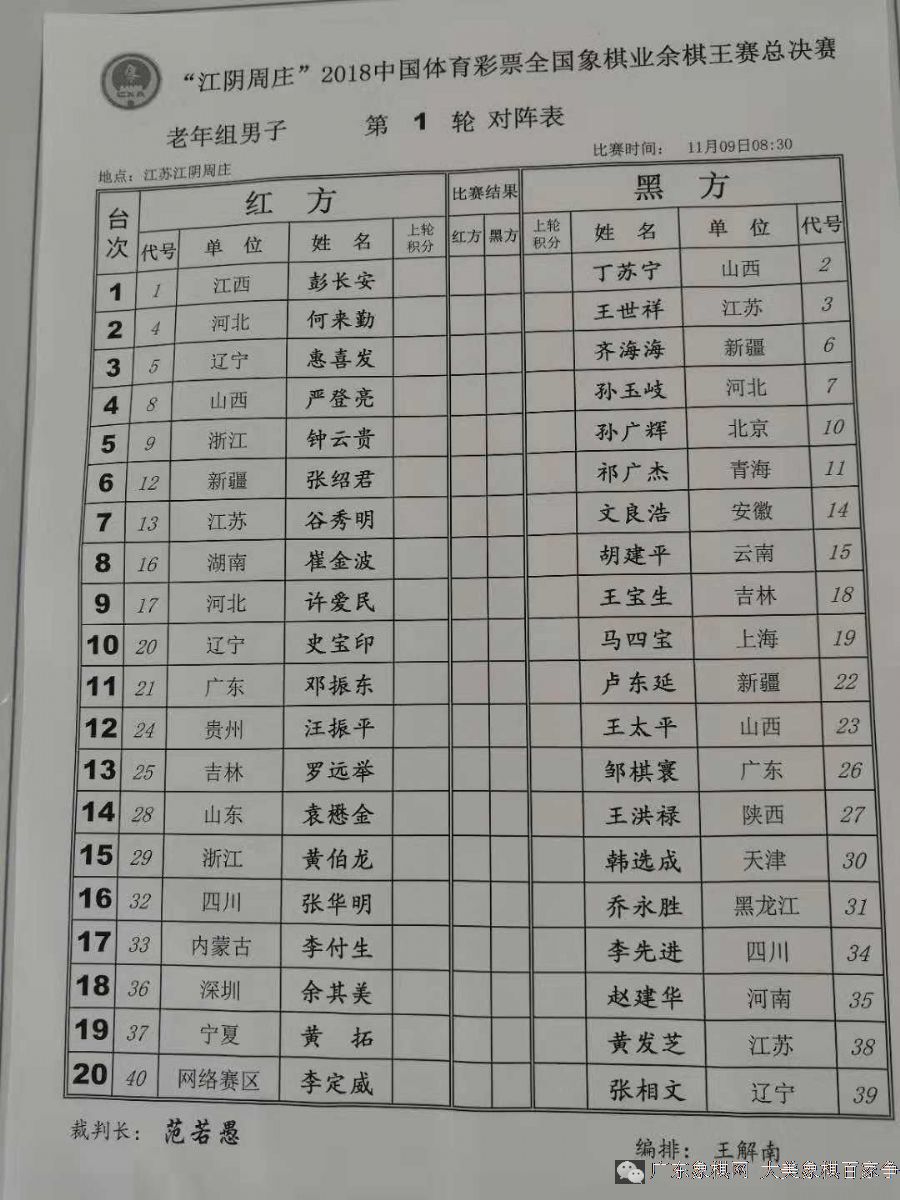 CXA
“江阴周庄”2018中国体育彩票全国象棋业余棋王赛总决赛
老年组男子 第 1 轮 对阵表
地点：江苏江阴周庄 比赛时间： 11月09日08:30
台次 红 方 比赛结果 黑 方
代号 单 位 姓 名 上轮积分 红方 黑方 上轮积分 姓 名 单 位 代号
1 1 江西 彭长安 丁苏宁 山西 2
2 4 河北 何来勤 王世祥 江苏 3
3 5 辽宁 惠喜发 齐海海 新疆 6
4 8 山西 严登亮 孙玉岐 河北 7
5 9 浙江 钟云贵 孙广辉 北京 10
6 12 新疆 张绍君 祁广杰 青海 11
7 13 江苏 谷秀明 文良浩 安徽 14
8 16 湖南 崔金波 胡建平 云南 15
9 17 河北 许爱民 王宝生 吉林 18
10 20 辽宁 史宝印 马四宝 上海 19
11 21 广东 邓振东 卢东延 新疆 22
12 24 贵州 汪振平 王太平 山西 23
13 25 吉林 罗远举 邹棋寰 广东 26
14 28 山东 袁懋金 王洪禄 陕西 27
15 29 浙江 黄伯龙 韩选成 天津 30
16 32 四川 张华明 乔永胜 黑龙江 31
17 33 内蒙古 李付生 李先进 四川 34
18 36 深圳 余其美 赵建华 河南 35
19 37 宁夏 黄 拓 黄发芝 江苏 38
20 40 网络赛区 李定威 张相文 辽宁 39
裁判长： 范若愚 编排： 王解南
广东象棋网 大美象棋百家争